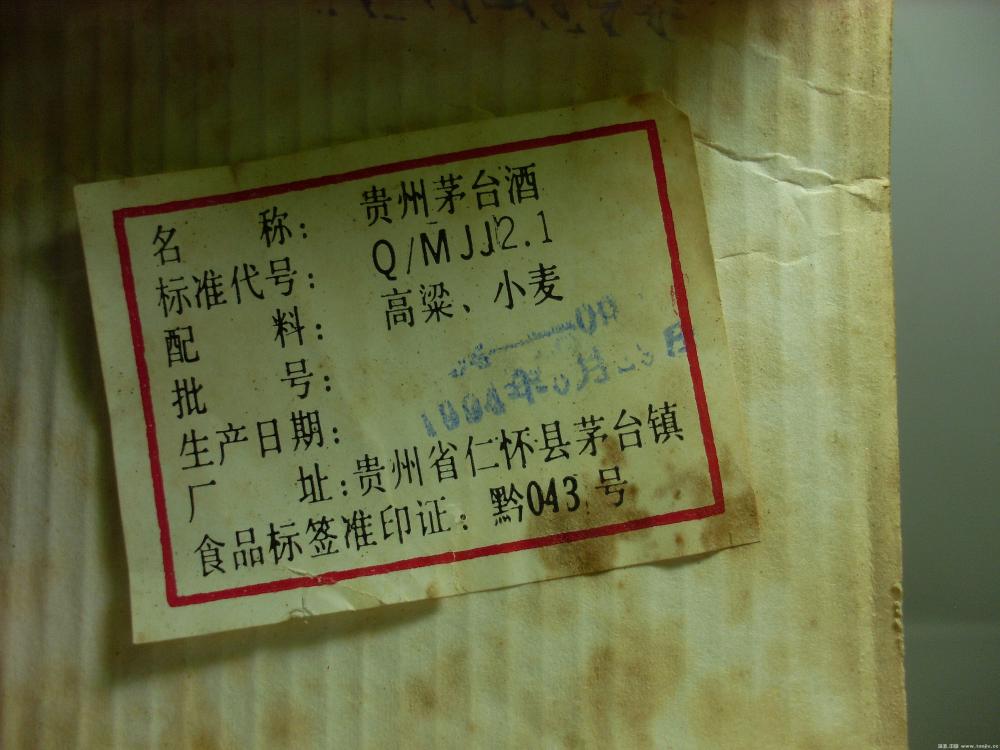 名 称: 贵州茅台酒
标准代号: Q/MJJ2.1
配 料: 高粱、小麦
批 号:
生产日期: 1994年 月 日
厂 址:贵州省仁怀县茅台镇
食品标签准印证: 黔043号